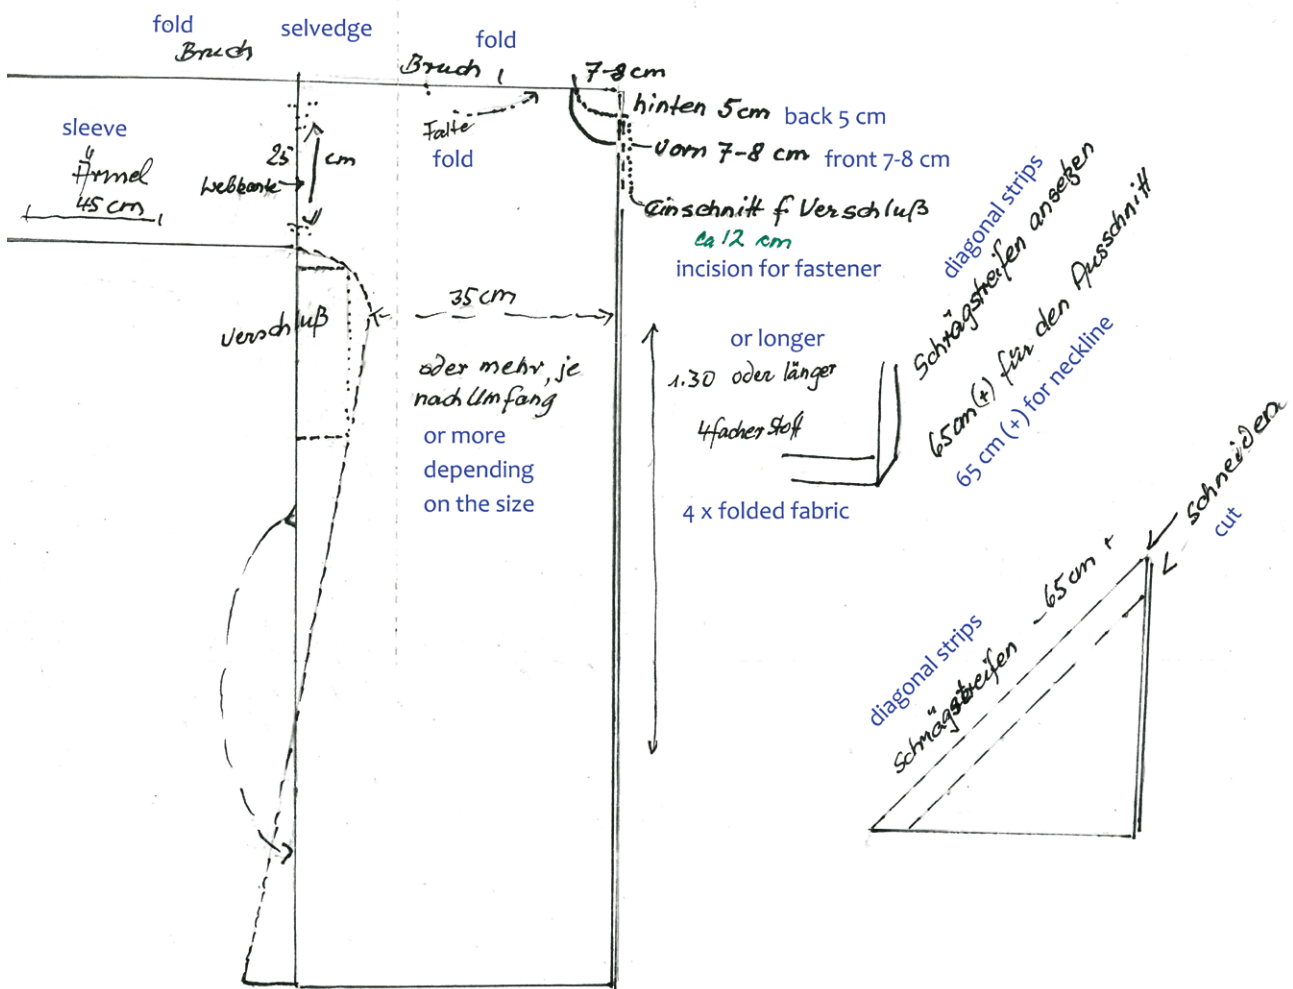 fold
Bruch
selvedge
fold
Bruch
7-8 cm
hinten 5 cm
back 5 cm
vorn 7-8 cm
front 7-8 cm
Falte
fold
sleeve
Ärmel
45 cm
25 cm
Webkante
Einschnitt f Verschluß
ca 12 cm
incision for fastener
Verschluß
35 cm
oder mehr, je
nach Umfang
or more
depending
on the size
or longer
1.30 oder länger
4facher Stoff
4 x folded fabric
diagonal strips
Schrägstreifen ansetzen
65 cm (+) für den Ausschnitt
65 cm (+) for neckline
schneiden
cut
diagonal strips
Schrägstreifen 65 cm +